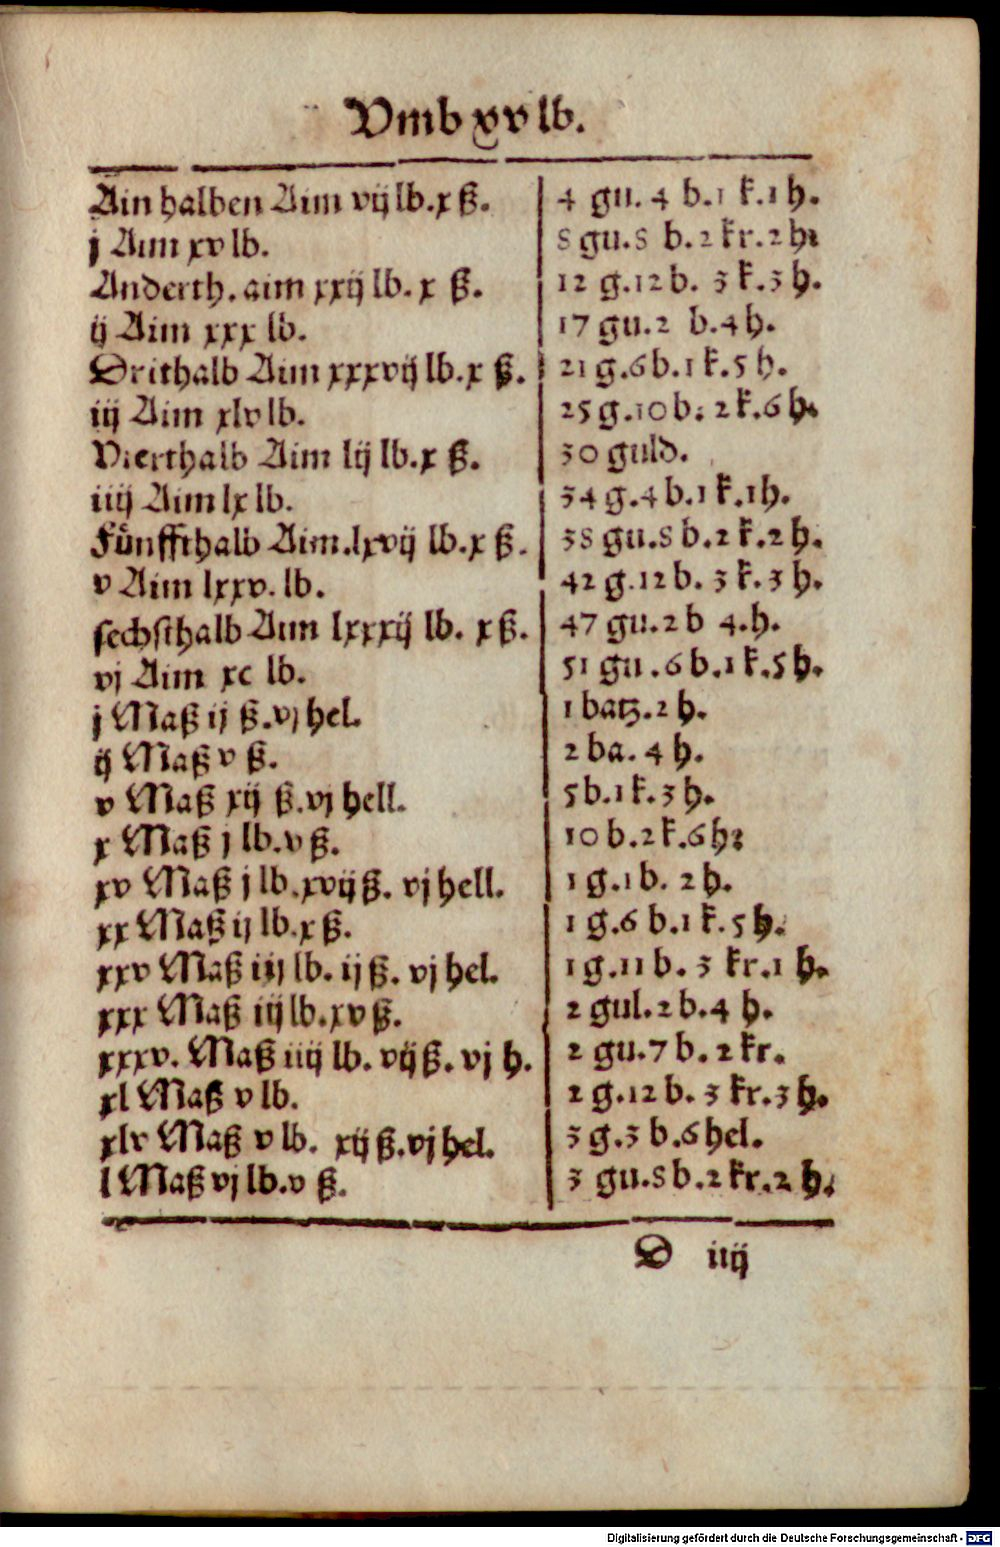 Vmb xv lb.
Ain halben Aim vij lb. x ß. 4 gu. 4 b. 1 k. 1 h.
j Aim xv lb. 8 gu. 8 b. 2 kr. 2 h:
Anderth. aim xxij lb. x ß. 12 g. 12 b. 3 k. 3 h.
ij Aim xxx lb. 17 gu. 2 b. 4 h.
Drithalb Aim xxxvij lb. x ß. 21 g. 6 b. 1 k. 5 h.
iij Aim xlv lb. 25 g. 10 b: 2 k. 6 h.
Vierthalb Aim lij lb. x ß. 30 guld.
iiij Aim lx lb. 34 g. 4 b. 1 k. 1 h.
Fůnffthalb Aim. lxvij lb. x ß. 38 gu. 8 b. 2 k. 2 h.
v Aim lxxv. lb. 42 g. 12 b. 3 k. 3 h.
sechsthalb Aim lxxxij lb. x ß. 47 gu. 2 b 4. h.
vj Aim xc lb. 51 gu. 6 b. 1 k. 5 h.
j Maß ij ß. vj hel. 1 batz. 2 h.
ij Maß v ß. 2 ba. 4 h.
v Maß xij ß. vj hell. 5 b. 1 k. 3 h.
x Maß j lb. v ß. 10 b. 2 k. 6 h:
xv Maß j lb. xvij ß. vj hell. 1 g. 1 b. 2 h.
xx Maß ij lb. x ß. 1 g. 6 b. 1 k. 5 h.
xxv Maß iij lb. ij ß. vj hel. 1 g. 11 b. 3 kr. 1 h.
xxx Maß iij lb. xv ß. 2 gul. 2 b. 4 h.
xxxv. Maß iiij lb. vij ß. vj h. 2 gu. 7 b. 2 kr.
xl Maß v lb. 2 g. 12 b. 3 kr. 3 h.
xlv Maß v lb. xij ß. vj hel. 3 g. 3 b. 6 hel.
l Maß vj lb. v ß. 3 gu. 8 b. 2 kr. 2 h.
D iiij
Digitalisierung gefördert durch die Deutsche Forschungsgemeinschaft - DFG